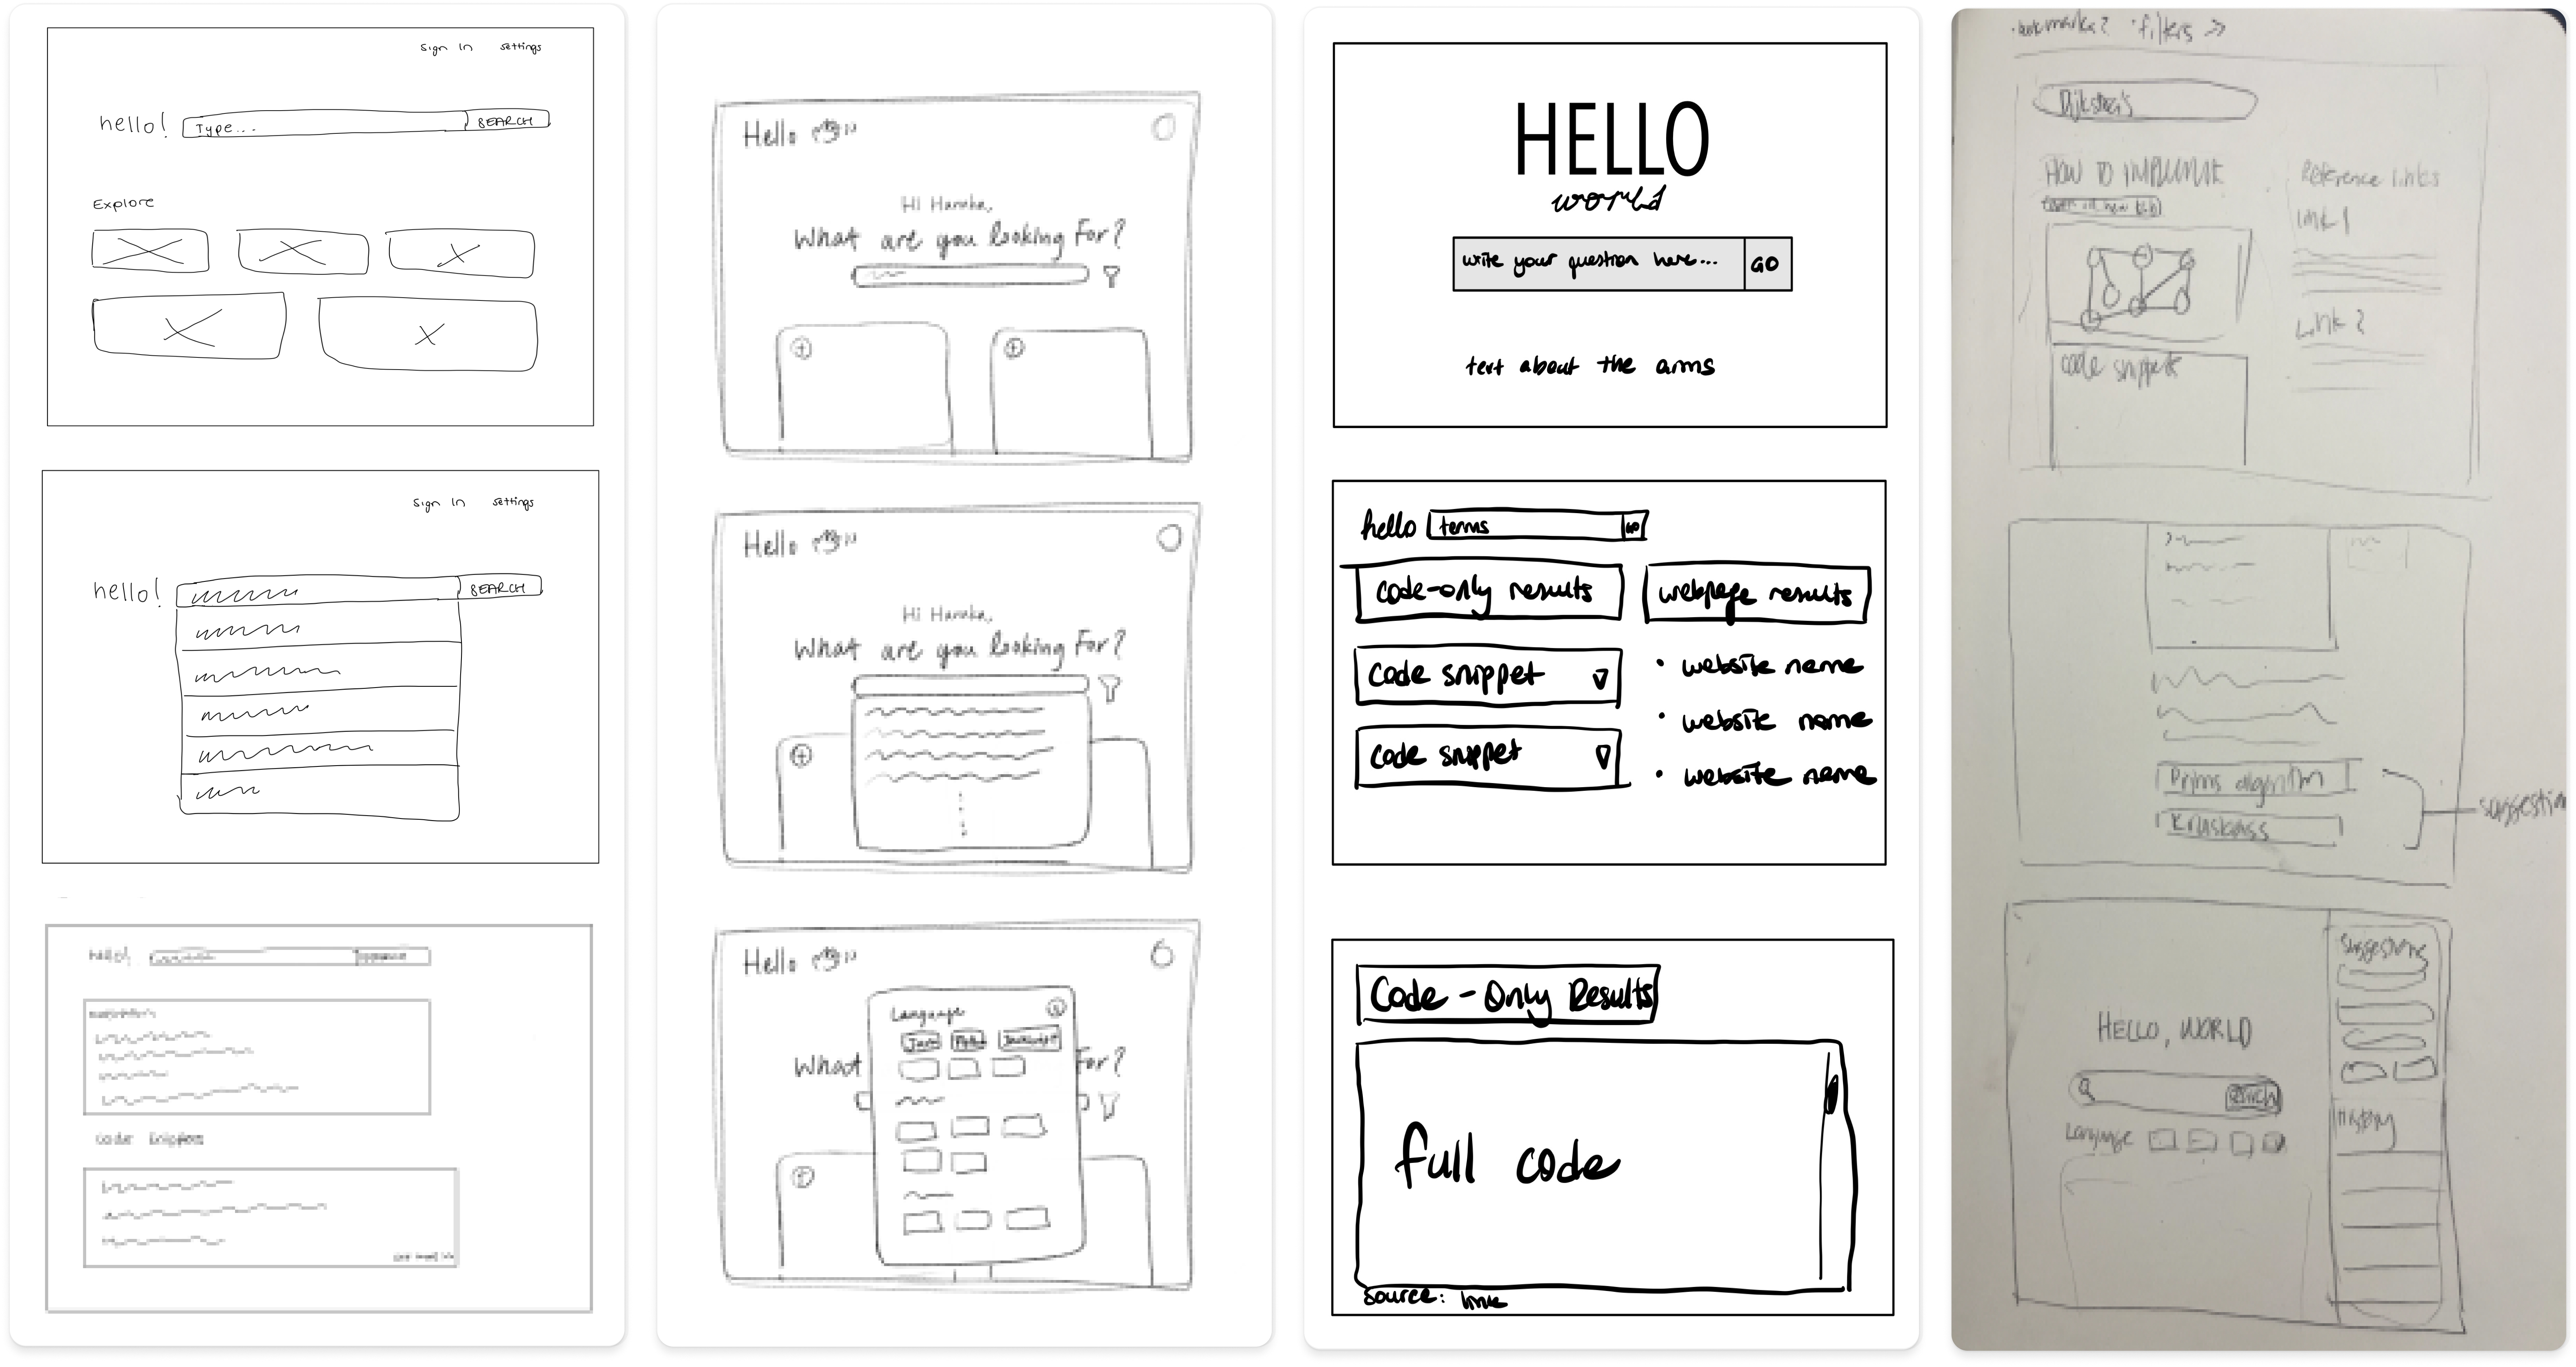 Sign In settings
hello! Type... SEARCH
Explore
Sign In settings
hello! SEARCH
hello!
code snippets
Hello
Hi Haruka,
What are you looking For?
Hello
Hi Haruka,
What are you looking For?
Hello
Language
Java JavaScript
What For?
HELLO
world
write your question here... GO
text about the arms
hello terms GO
code-only results webpage results
code snippet • website name
• website name
code snippet
• website name
Code-Only Results
full code
source: link
filters >>
Dijkstra's
HOW TO IMPLEMENT Reference links
link 1
Link 2
code snippets
Prims algorithm
suggestion
Suggestions
HELLO, WORLD
search
Language
History